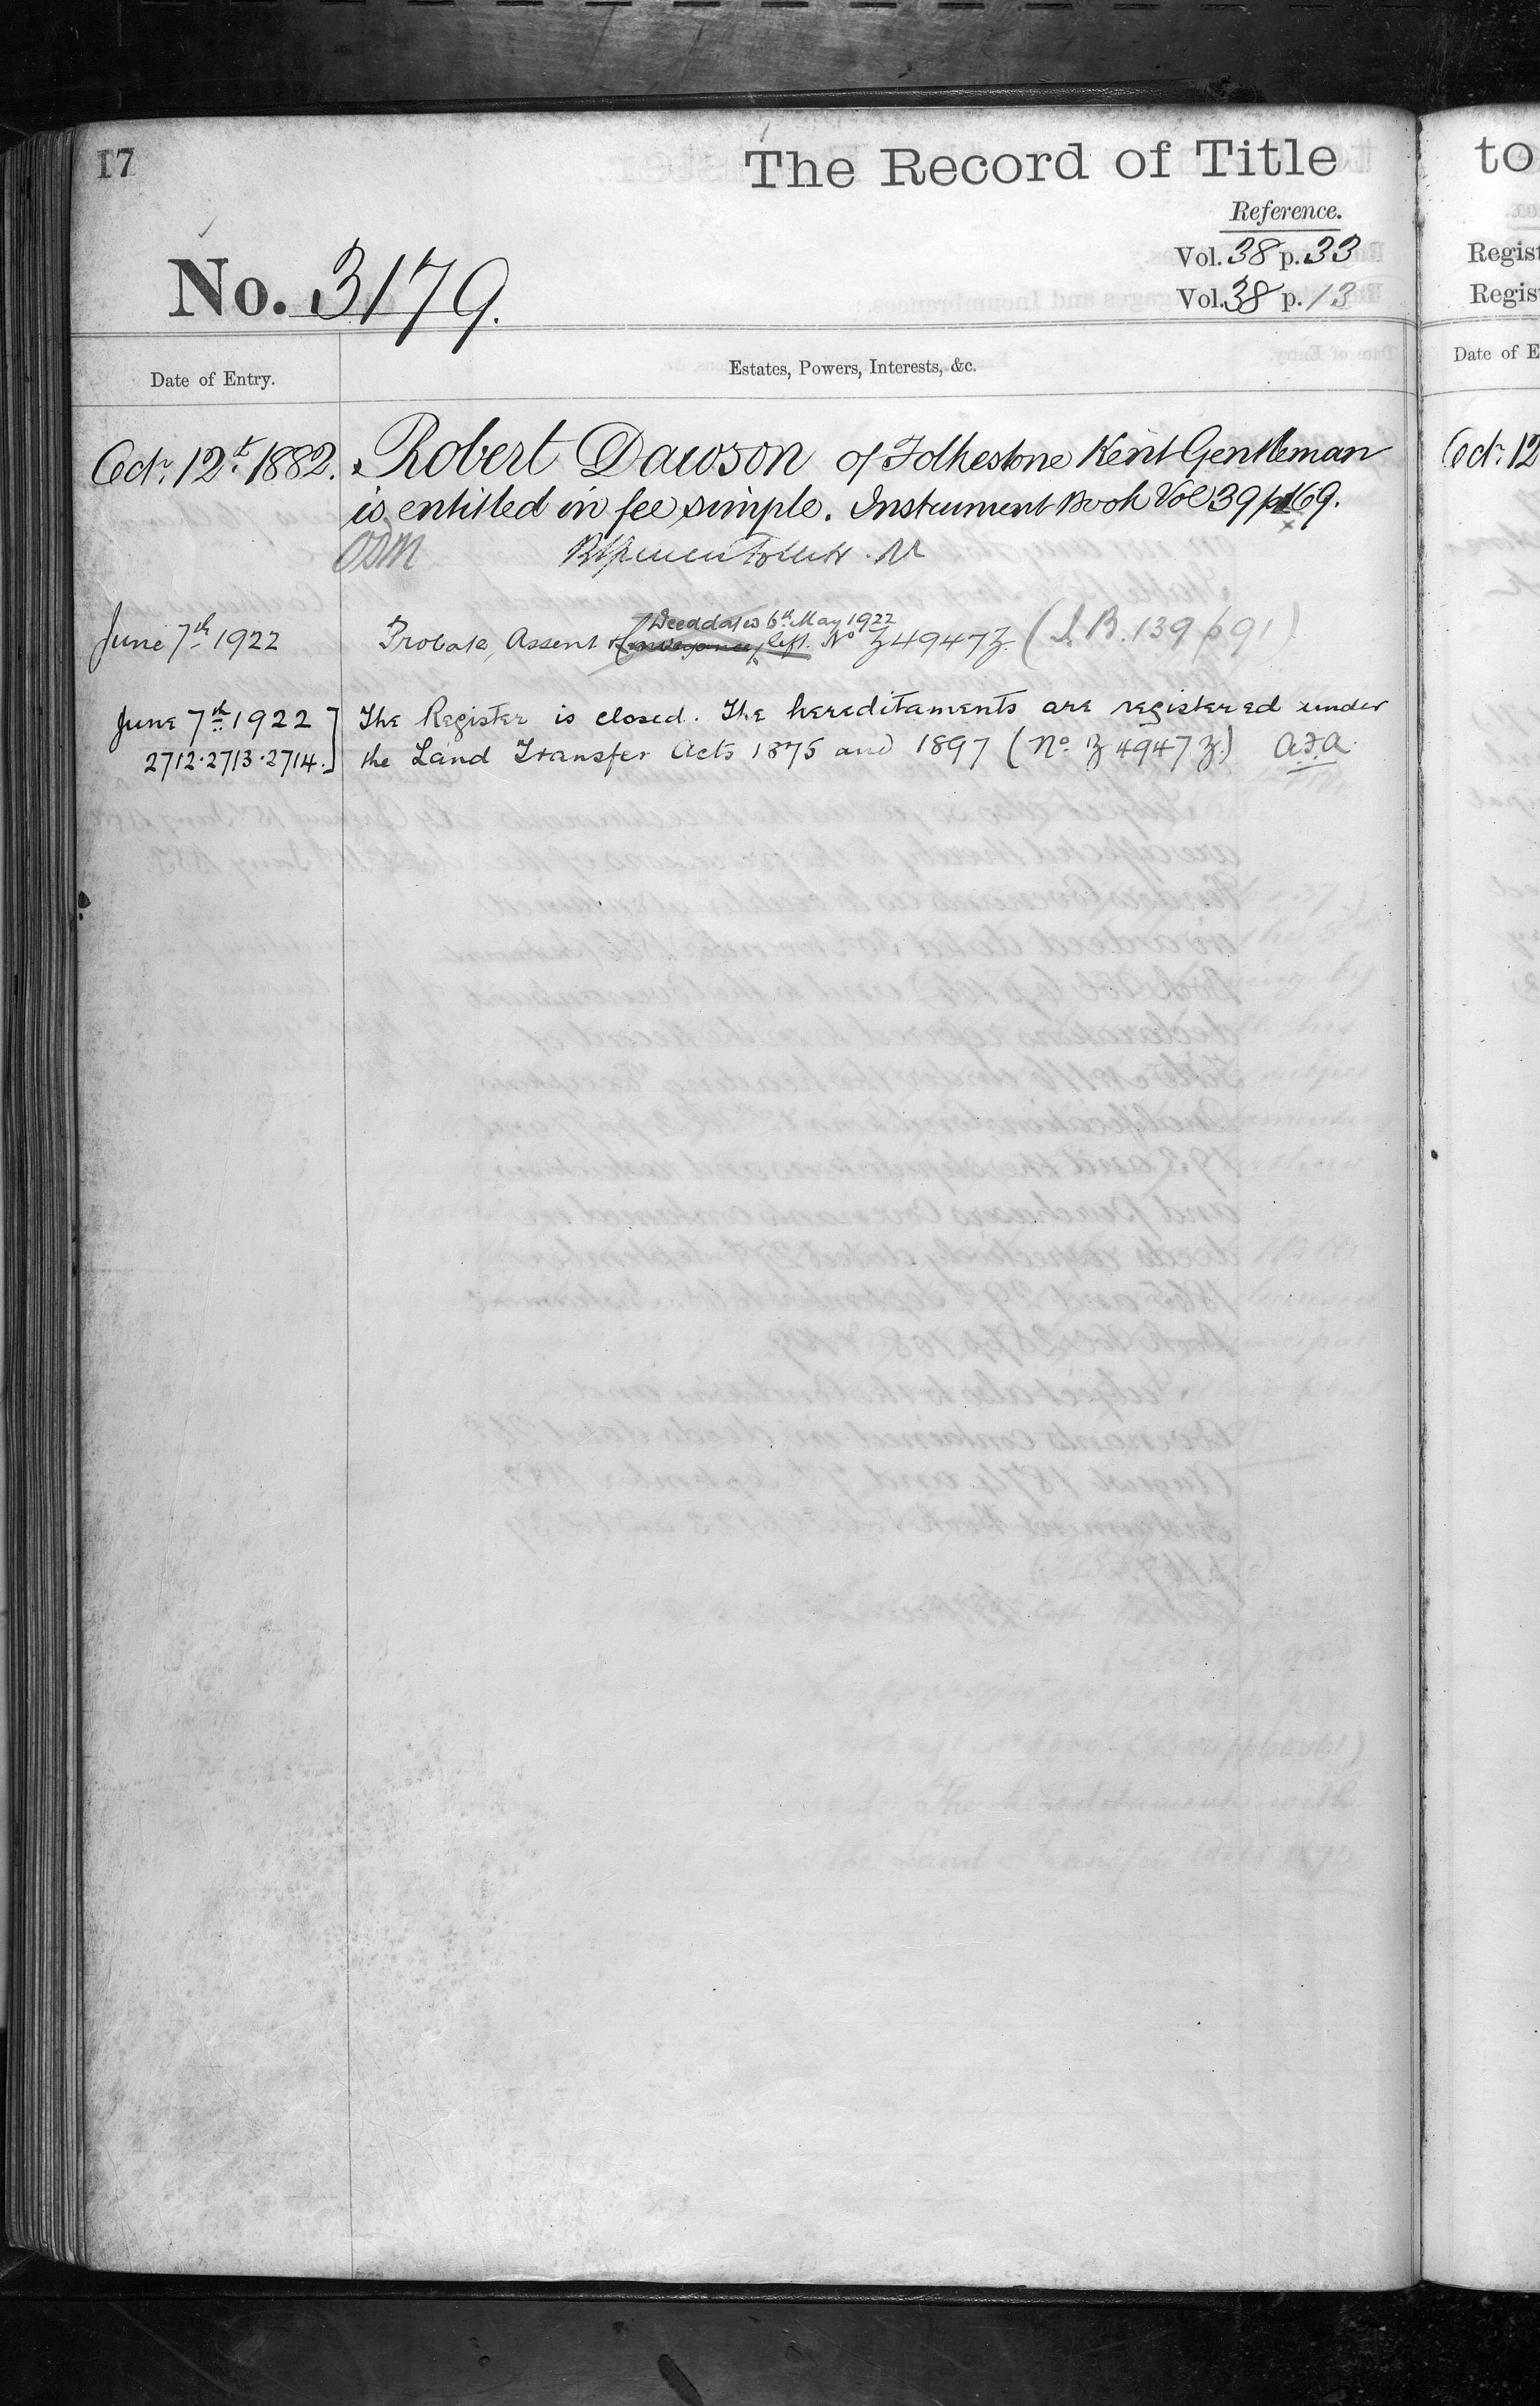 17
The Record of Title
to
Reference.
Vol. 38 p. 33
Vol. 38 p. 13
Regist
Regis
No. 3179.
Date of Entry.
Estates, Powers, Interests, &c.
Date of E
Octr. 12th. 1882. Robert Dawson of Folkestone Kent Gentleman
Octr. 12
is entitled in fee simple. Instrument Book Vol 39 p 169.
ODM
Deed dated 6th May 1922
June 7th 1922 Probate, Assent & Conveyance left. No Z4947Z. (I.B. 139 p 91)
June 7th 1922 The Register is closed. The hereditaments are registered under
2712.2713.2714. the Land Transfer Acts 1875 and 1897 (No. Z4947Z.) A.J.A.